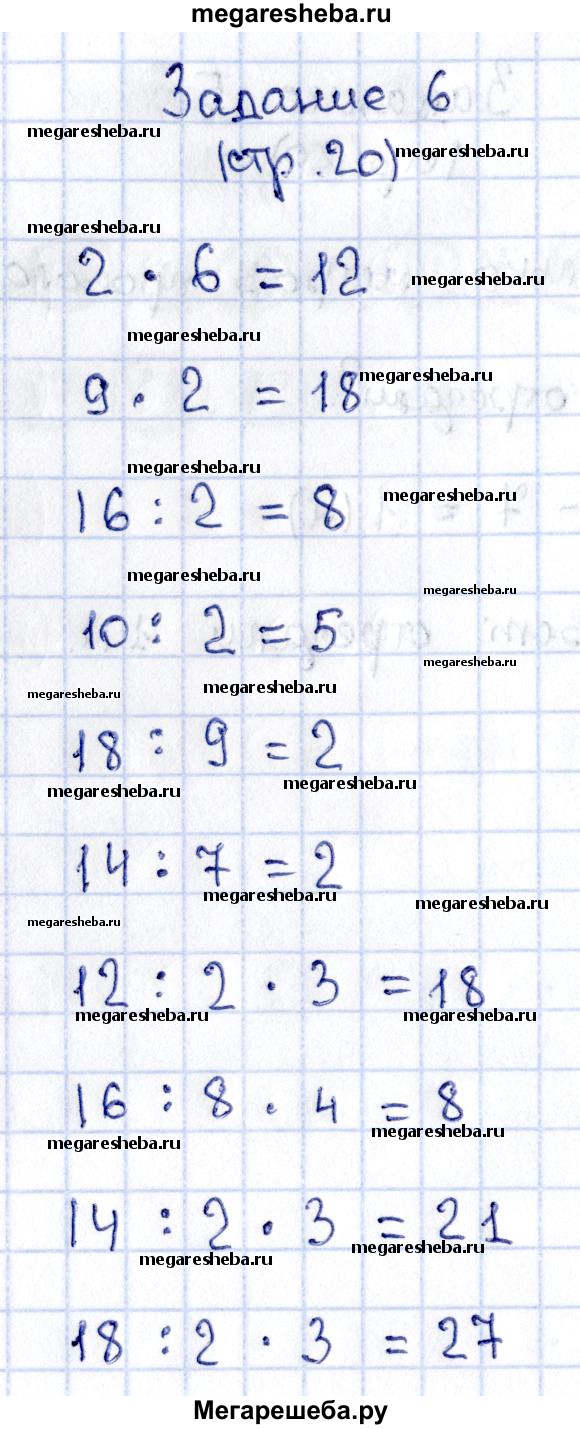 megaresheba.ru
Задание 6
megaresheba.ru
(стр. 20) megaresheba.ru
megaresheba.ru
2 · 6 = 12 megaresheba.ru
megaresheba.ru
9 · 2 = 18 megaresheba.ru
megaresheba.ru
16 : 2 = 8 megaresheba.ru
megaresheba.ru
megaresheba.ru
10 : 2 = 5
megaresheba.ru
megaresheba.ru megaresheba.ru
18 : 9 = 2
megaresheba.ru megaresheba.ru
14 : 7 = 2
megaresheba.ru megaresheba.ru
megaresheba.ru
12 : 2 · 3 = 18
megaresheba.ru megaresheba.ru
16 : 8 · 4 = 8
megaresheba.ru megaresheba.ru
14 : 2 · 3 = 21
megaresheba.ru megaresheba.ru
18 : 2 · 3 = 27
Мегарешеба.ру